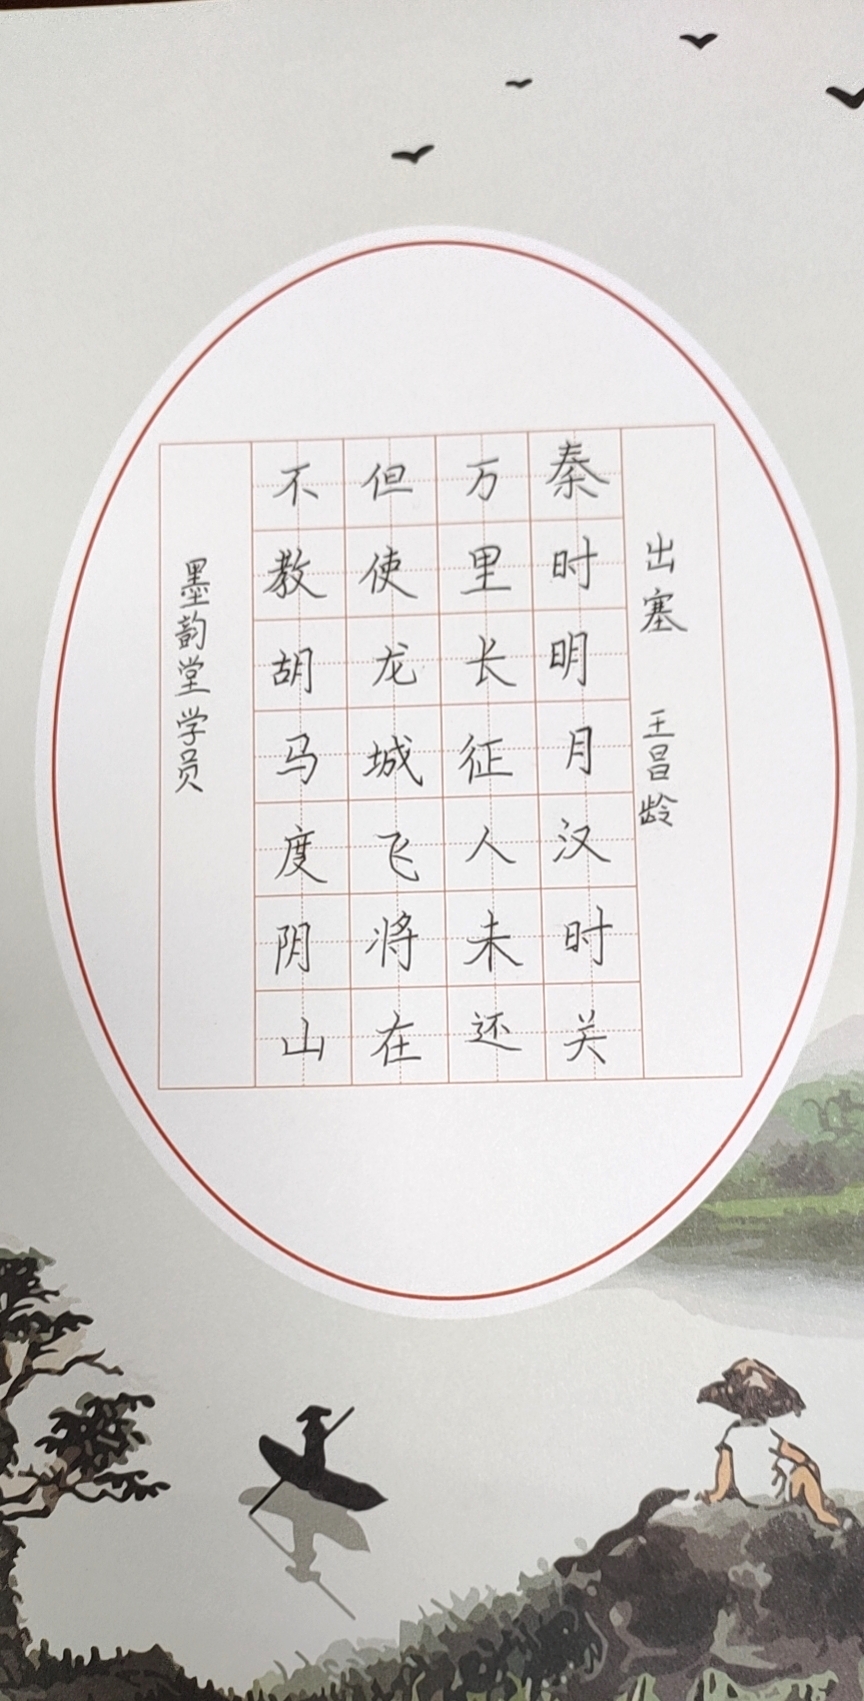 出塞 王昌龄
秦时明月汉时关
万里长征人未还
但使龙城飞将在
不教胡马度阴山
墨韵堂学员